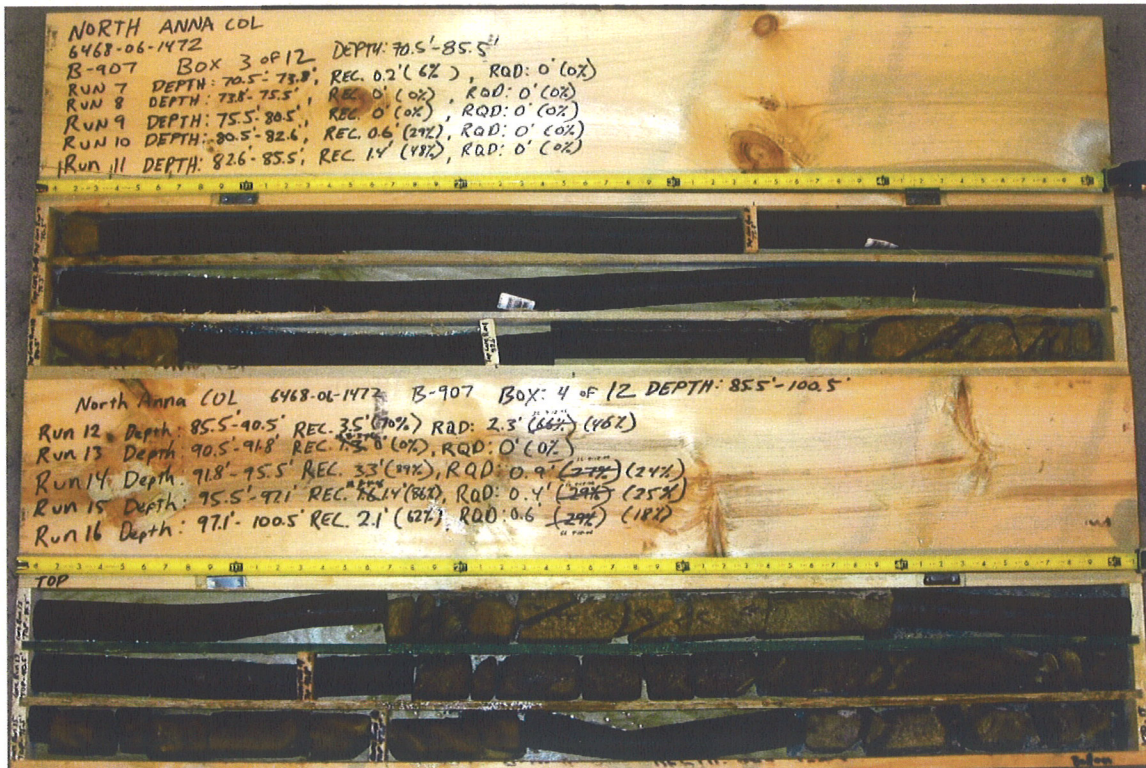 NORTH ANNA COL
6468-06-1472
B-907 BOX 3 OF 12 DEPTH: 70.5'-85.5'
RUN 7 DEPTH: 70.5'-73.8', REC. 0.2' (6%), RQD: 0' (0%)
RUN 8 DEPTH: 73.8'-75.5', REC 0' (0%), RQD: 0' (0%)
RUN 9 DEPTH: 75.5'-80.5', REC. 0' (0%), RQD: 0' (0%)
RUN 10 DEPTH: 80.5'-82.6', REC. 0.6' (29%), RQD: 0' (0%)
Run 11 DEPTH: 82.6'-85.5', REC 1.4' (48%), RQD: 0' (0%)
North Anna COL 6468-06-1472 B-907 BOX: 4 OF 12 DEPTH: 85.5'-100.5'
Run 12 Depth: 85.5'-90.5' REC. 3.5' (70%) RQD: 2.3' (66%) (46%)
Run 13 Depth: 90.5'-91.8' REC. 0' (0%), RQD: 0' (0%)
Run 14 Depth: 91.8'-95.5' REC. 3.3' (89%), RQD: 0.9' (27%) (24%)
Run 15 Depth: 95.5'-97.1' REC. 1.4' (86%), RQD: 0.4' (29%) (25%)
Run 16 Depth: 97.1'-100.5' REC. 2.1' (62%), RQD: 0.6' (29%) (18%)
TOP